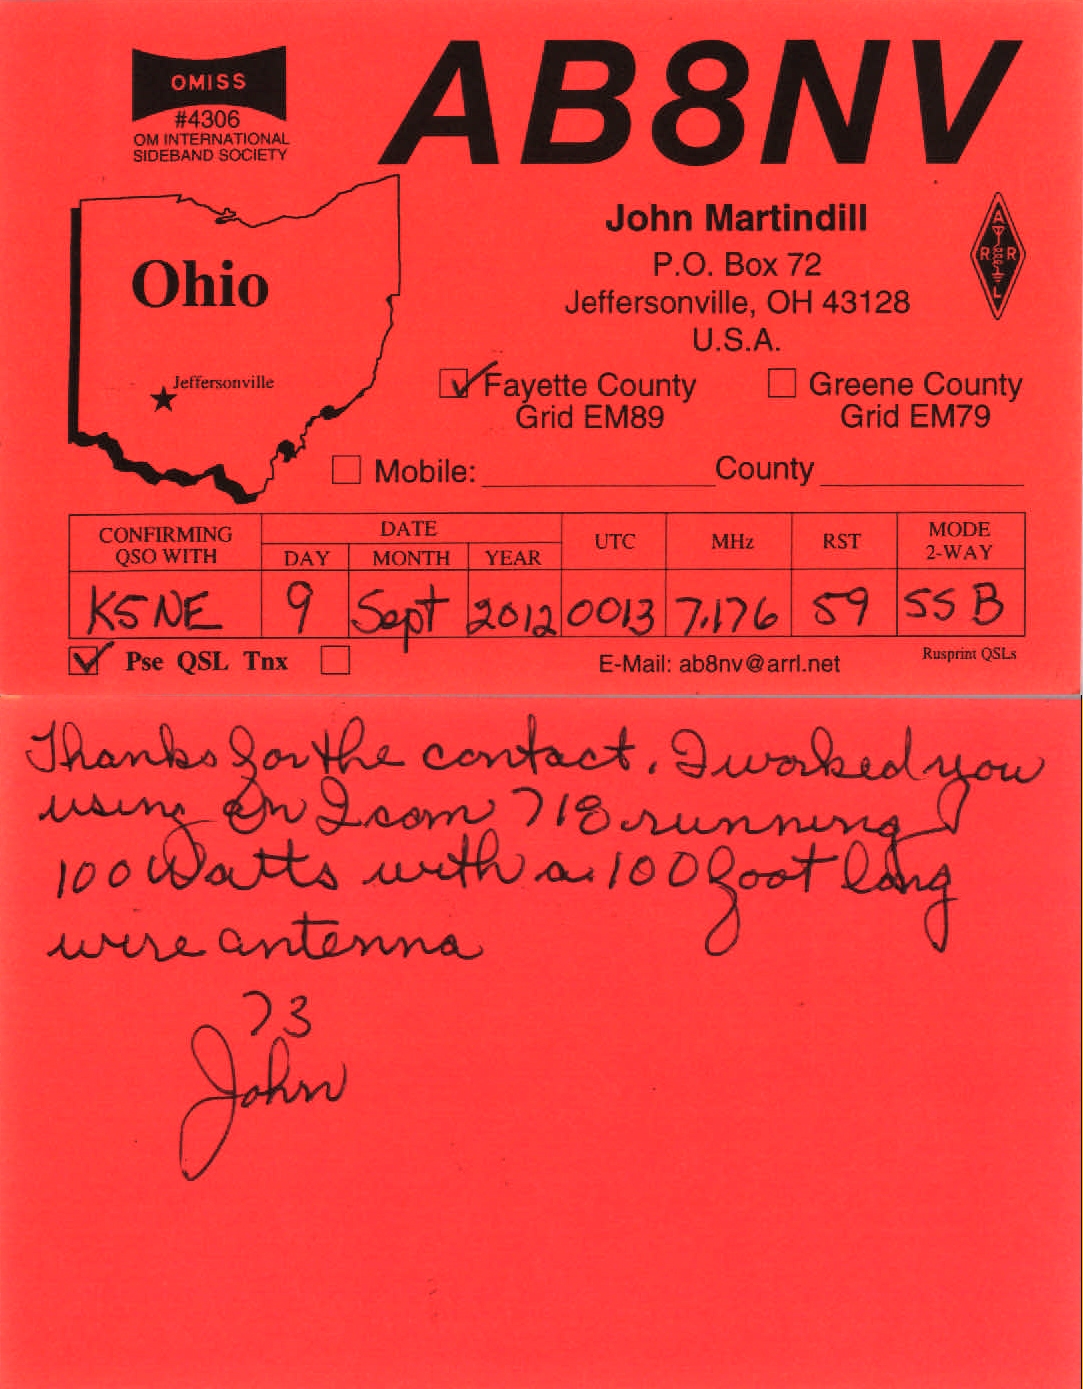 OMISS
#4306
OM INTERNATIONAL
SIDEBAND SOCIETY
AB8NV
John Martindill
P.O. Box 72
Jeffersonville, OH 43128
U.S.A.
A
R R
L
Ohio
Jeffersonville
Fayette County
Grid EM89
Greene County
Grid EM79
Mobile: County
CONFIRMING QSO WITH DATE DAY MONTH YEAR UTC MHz RST MODE 2-WAY
K5NE 9 Sept 2012 0013 7.176 59 SSB
Pse QSL Tnx
E-Mail: ab8nv@arrl.net
Rusprint QSLs
Thanks for the contact. I worked you
using an Icom 718 running
100 Watts with a 100 foot long
wire antenna
73
John